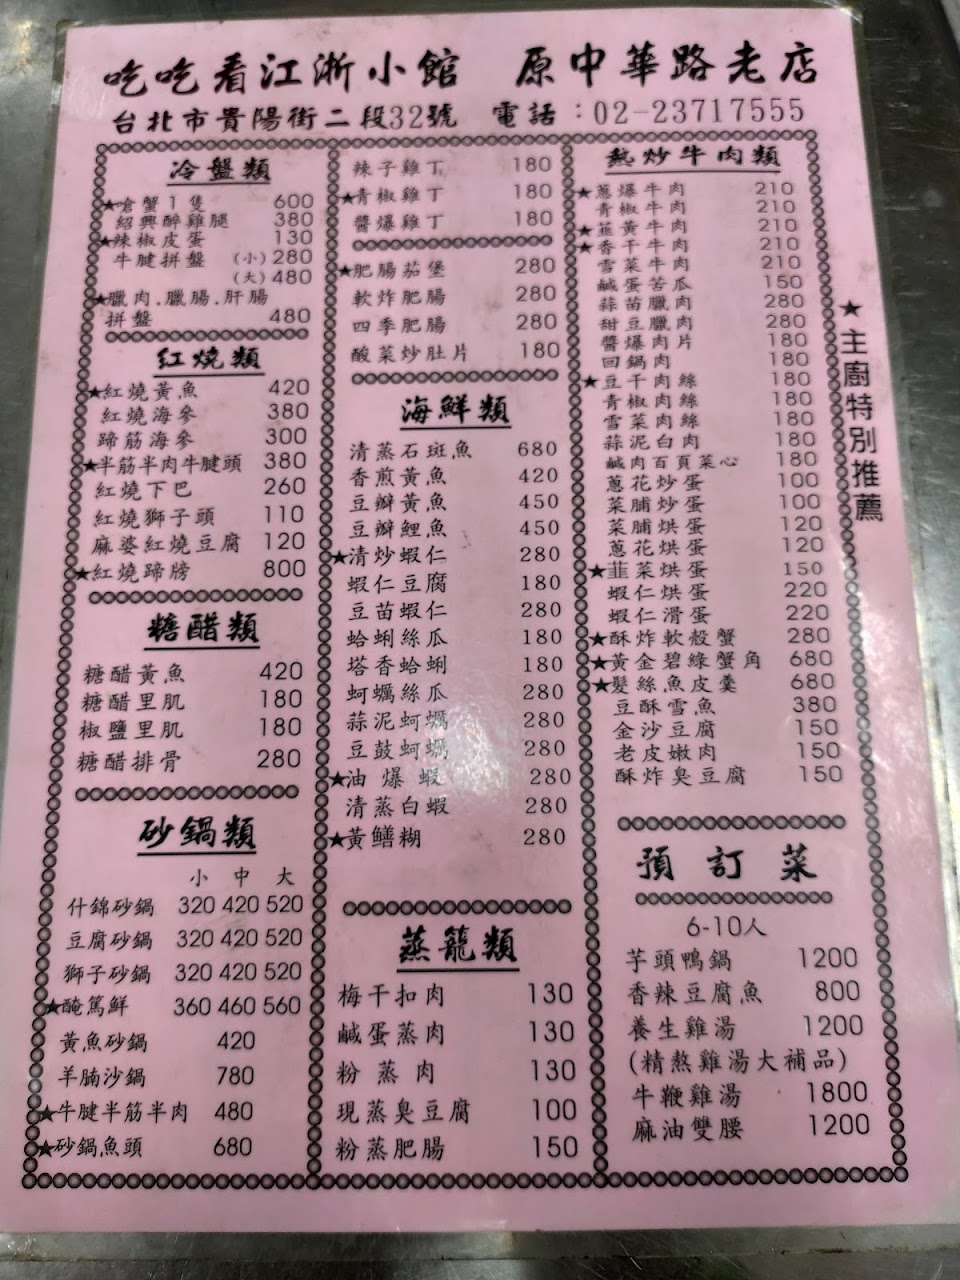 吃吃看江浙小館 原中華路老店
台北市貴陽街二段32號 電話：02-23717555
冷盤類
★嗆蟹1隻 600
紹興醉雞腿 380
★辣椒皮蛋 130
牛腱拼盤 (小) 280
(大) 480
★臘肉.臘腸.肝腸
拼盤 480
紅燒類
★紅燒黃魚 420
紅燒海參 380
蹄筋海參 300
★半筋半肉牛腱頭 380
紅燒下巴 260
紅燒獅子頭 110
麻婆紅燒豆腐 120
★紅燒蹄膀 800
糖醋類
糖醋黃魚 420
糖醋里肌 180
椒鹽里肌 180
糖醋排骨 280
砂鍋類
小 中 大
什錦砂鍋 320 420 520
豆腐砂鍋 320 420 520
獅子砂鍋 320 420 520
★醃篤鮮 360 460 560
黃魚砂鍋 420
羊腩沙鍋 780
★牛腱半筋半肉 480
★砂鍋魚頭 680
辣子雞丁 180
★青椒雞丁 180
醬爆雞丁 180
★肥腸茄堡 280
軟炸肥腸 280
四季肥腸 280
酸菜炒肚片 180
海鮮類
清蒸石斑魚 680
香煎黃魚 420
豆瓣黃魚 450
豆瓣鯉魚 450
★清炒蝦仁 280
蝦仁豆腐 180
豆苗蝦仁 280
蛤蜊絲瓜 180
塔香蛤蜊 180
蚵蠣絲瓜 280
蒜泥蚵蠣 280
豆鼓蚵蠣 280
★油爆蝦 280
清蒸白蝦 280
★黃鱔糊 280
蒸籠類
梅干扣肉 130
鹹蛋蒸肉 130
粉蒸肉 130
現蒸臭豆腐 100
粉蒸肥腸 150
熱炒牛肉類
★蔥爆牛肉 210
青椒牛肉 210
★韮黃牛肉 210
★香干牛肉 210
雪菜牛肉 210
鹹蛋苦瓜 150
蒜苗臘肉 280
甜豆臘肉 280
醬爆肉片 180
回鍋肉 180
★豆干肉絲 180
青椒肉絲 180
雪菜肉絲 180
蒜泥白肉 180
鹹肉百頁菜心 180
蔥花炒蛋 100
菜脯炒蛋 100
菜脯烘蛋 120
蔥花烘蛋 120
★韭菜烘蛋 150
蝦仁烘蛋 220
蝦仁滑蛋 220
★酥炸軟殼蟹 280
★黃金碧綠蟹角 680
★髮絲魚皮羹 680
豆酥雪魚 380
金沙豆腐 150
老皮嫩肉 150
酥炸臭豆腐 150
預訂菜
6-10人
芋頭鴨鍋 1200
香辣豆腐魚 800
養生雞湯 1200
(精熬雞湯大補品)
牛鞭雞湯 1800
麻油雙腰 1200
★主廚特別推薦